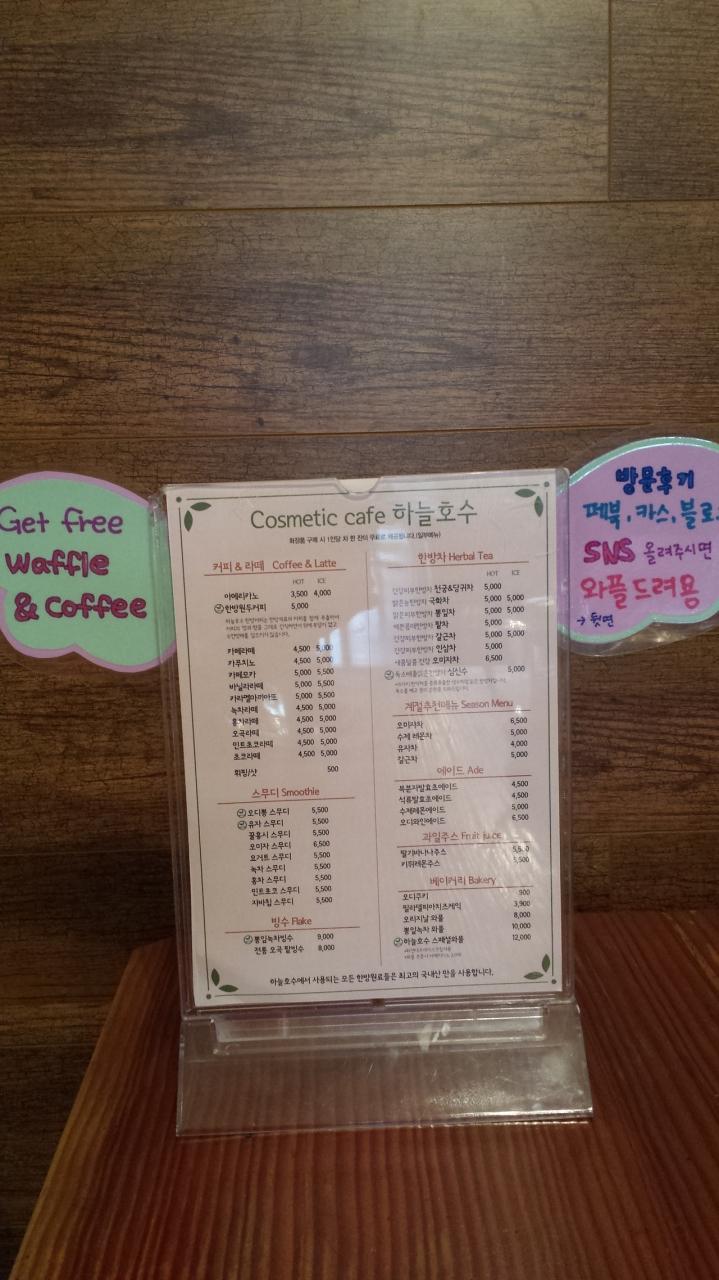 Get free
Waffle
& Coffee
방문후기
페북, 카스, 블로
SNS 올려주시면
와플드려용
→ 뒷면
Cosmetic cafe 하늘호수
화장품 구매 시 1인당 차 한 잔이 무료로 제공됩니다.(일부메뉴)
커피 & 라떼 Coffee & Latte
HOT ICE
아메리카노 3,500 4,000
한방원두커피 5,000
카페라떼 4,500 5,000
카푸치노 4,500 5,000
카페모카 5,000 5,500
바닐라라떼 5,000 5,500
카라멜마끼아또 5,000 5,500
녹차라떼 4,500 5,000
홍차라떼 4,500 5,000
오곡라떼 4,500 5,000
민트초코라떼 4,500 5,000
초코라떼 4,500 5,000
휘핑/샷 500
스무디 Smoothie
오디뽕 스무디 5,500
유자 스무디 5,500
꿀홍시 스무디 5,500
오미자 스무디 6,500
요거트 스무디 5,500
녹차 스무디 5,500
홍차 스무디 5,500
민트초코 스무디 5,500
자바칩 스무디 5,500
빙수 Flake
뽕잎녹차빙수 9,000
전통 오곡 팥빙수 8,000
한방차 Herbal Tea
HOT ICE
건강피부한방차 천궁&당귀차 5,000
맑은눈한방차 국화차 5,000 5,000
맑은피부한방차 뽕잎차 5,000 5,000
예쁜몸매한방차 팥차 5,000 5,000
건강피부한방차 갈근차 5,000 5,000
건강피부한방차 인삼차 5,000
새콤달콤 건강 오미자차 6,500
독소배출맑은한방차 심신수 5,000
계절추천메뉴 Season Menu
오미자차 6,500
수제 레몬차 5,000
유자차 4,000
갈근차 5,000
에이드 Ade
복분자발효초에이드 4,500
석류발효초에이드 4,500
수제레몬에이드 5,000
오디와인에이드 6,500
과일주스 Fruit juice
딸기바나나주스 5,500
키위레몬주스 5,500
베이커리 Bakery
오디쿠키 900
필라델피아치즈케익 3,900
오리지날 와플 8,000
뽕잎녹차 와플 10,000
하늘호수 스페셜와플 12,000
하늘호수에서 사용되는 모든 한방원료들은 최고의 국내산 만을 사용합니다.